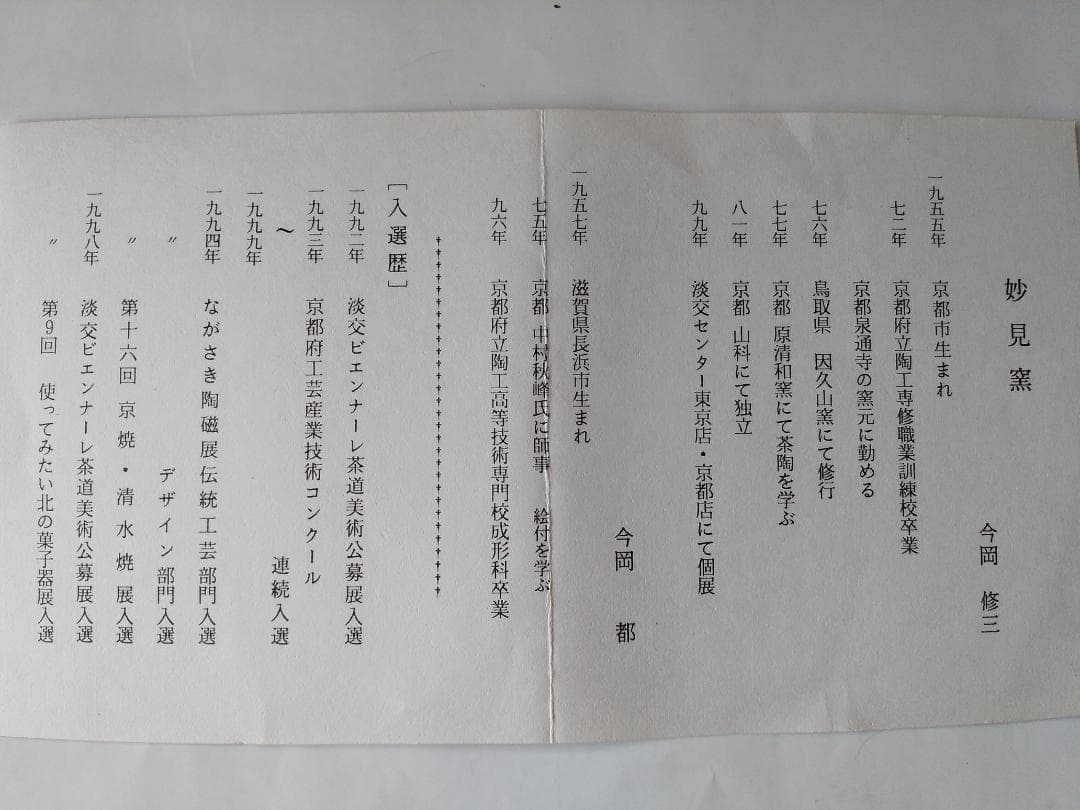 妙見窯
今岡 修三
一九五五年 京都市生まれ
七二年 京都府立陶工専修職業訓練校卒業
京都泉通寺の窯元に勤める
七六年 鳥取県 因久山窯にて修行
七七年 京都 原清和窯にて茶陶を学ぶ
八一年 京都 山科にて独立
九九年 淡交センター東京店・京都店にて個展
今岡 都
一九五七年 滋賀県長浜市生まれ
七五年 京都 中村秋峰氏に師事 絵付を学ぶ
九六年 京都府立陶工高等技術専門校成形科卒業
[入選歴]
一九九二年 淡交ビエンナーレ茶道美術公募展入選
一九九三年 京都府工芸産業技術コンクール
〜 連続入選
一九九九年
一九九四年 ながさき陶磁展伝統工芸部門入選
〃 デザイン部門入選
〃 第十六回 京焼・清水焼展入選
一九九八年 淡交ビエンナーレ茶道美術公募展入選
〃 第9回 使ってみたい北の菓子器展入選